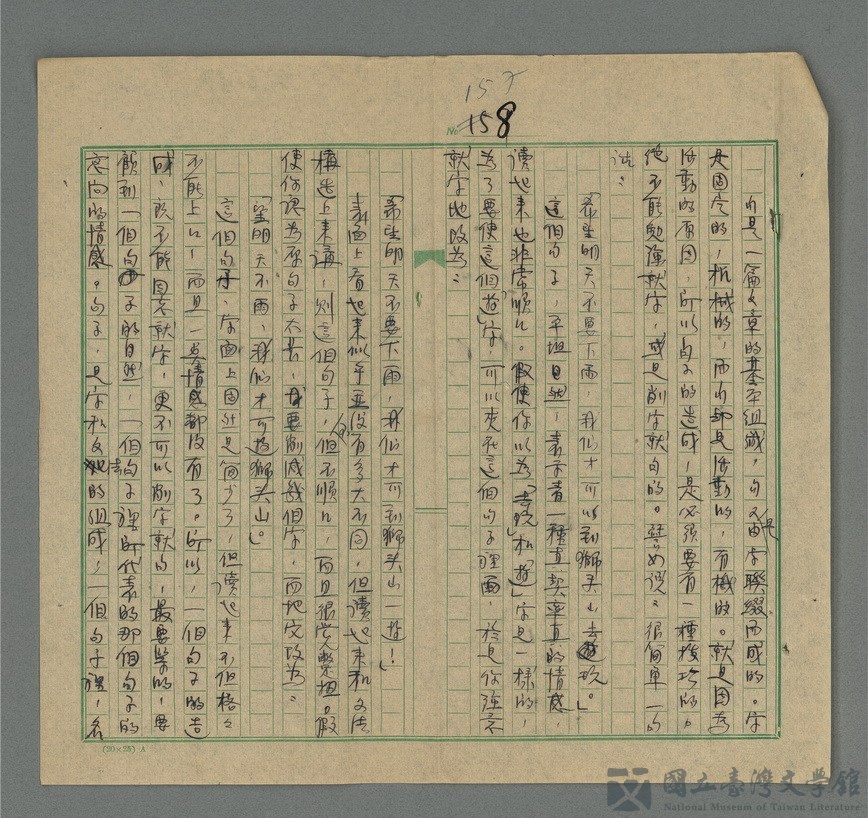 157
No. 158
句是一篇文章的基本組成,句又是由字聯綴而成的。字
是固定的,机械的,而句却是活動的,有機的。就是因為
活動的原因,所以句子的造成,是必須要有一種技巧的。
絕不能勉強就字,或是削字就句的。譬如說:很簡單一的
話:
「希望明天不要下雨,我們才可以到獅头山去遊玩。」
這個句子,平坦自然,表示着一種真摯率直的情感,
讀起來也非常順口。假使你以為「去玩」和「遊」字是一樣的,
為了要使這個「遊」字,可以夾在這個句子裡面,於是你強意
就字地改為:
「希望明天不要下雨,我們才可到獅头山一遊!」
表面上看起來似乎並沒有多大不同,但讀起來和文法
構造上來講,則這個句子,不但不順口,而且很覺彆扭。假
使你認為原句子不長,要削減幾個字,而地它改為:
「望明天不雨,我們才可遊獅头山。」
這個句子,字面上固然是簡少了,但讀起來不但格格
不能上口,而且一点情感都沒有了。所以,一個句子的造
成,既不能固意就字,更不可以削字就句,最要緊的,要
顧到一個句子的自然,一個句子裡所代表的那個句子的
意向的情感。句子,是字和文法的組成,一個句子裡,名
(20×25)·A
國立臺灣文學館
National Museum of Taiwan Literature